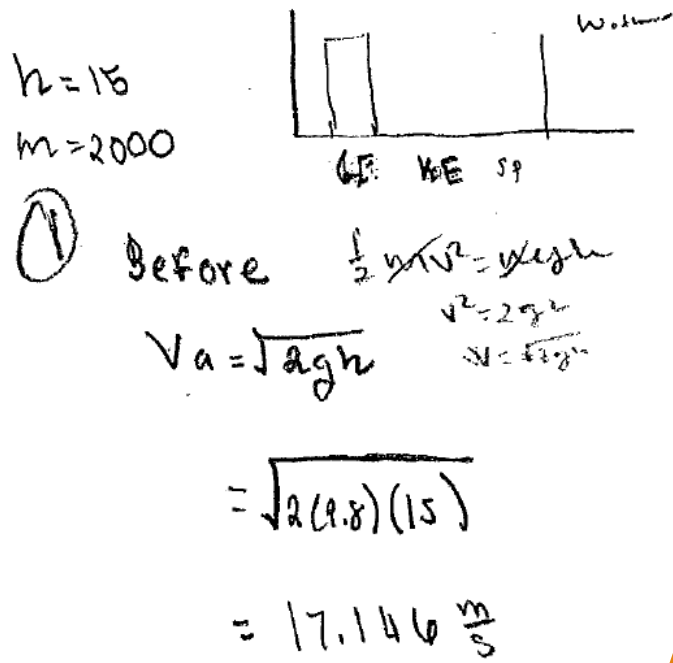 h=15
m=2000
GE KE SP
① Before
½mv²=mgh
v²=2gh
v=√2gh
Va=√2gh
=√2(9.8)(15)
= 17.146 m/s